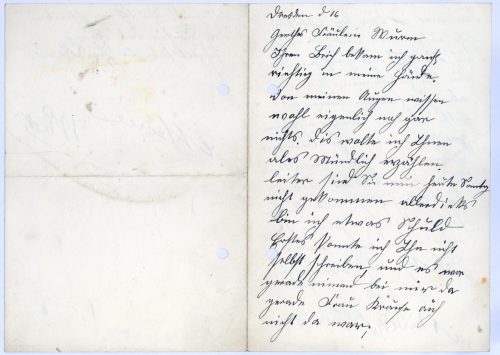 Dresden d 16
Gerthes Fräulein Wurm
Ihren Brief bekam ich ganz
richtig in meine Hände.
Von meinen Augen wissen
wohl eigenlich noch gar
nichts. Dis wolte ich Ihnen
ales Mündlich erzählen
leiter sind Sie nun heute Sontag
nicht gekommen allerdieks
bin ich etwas Schuld
Erstes konnte ich Ihn nicht
selbst schreiben, und es war
gerade nimand bei mir da
gerade Frau Krause auch
nicht da war,